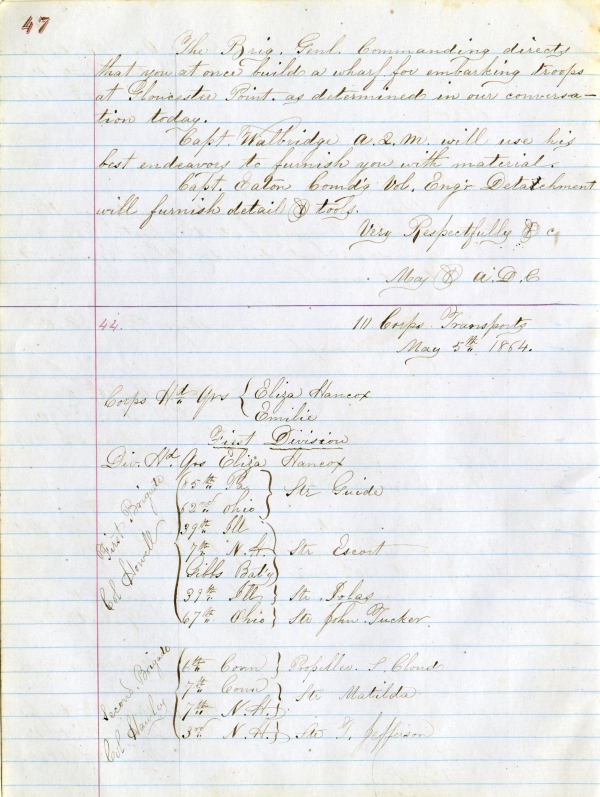 47
The Brig. Genl. Commanding directs
that you at once build a wharf for embarking troops
at Gloucester Point. as determined in our conversa-
tion today.
Capt. Walbridge A.Q.M. will use his
best endeavors to furnish you with material.
Capt. Eaton Comd'g Vol. Eng'r Detatchment
will furnish detail & tools.
Very Respectfully & c
May & A.D.C
44.
10 Corps Transports
May 5th 1864.
Corps Hd Qrs { Eliza Hancox
Emilie
First Division
Div. Hd. Qrs Eliza Hancox
First Brigade
Col Howell
85th Pa
62nd Ohio } Str Guide
39th Ill
7th N.H. } Str Escort
Gibbs Bat'y
39th Ill } Str. Iolas
67th Ohio } Str John Tucker.
Second Brigade
Col Hawley
6th Conn } Propeller S. Cloud
7th Conn
7th N.H. } Str Matilda
3rd N.H. } Str T. Jefferson